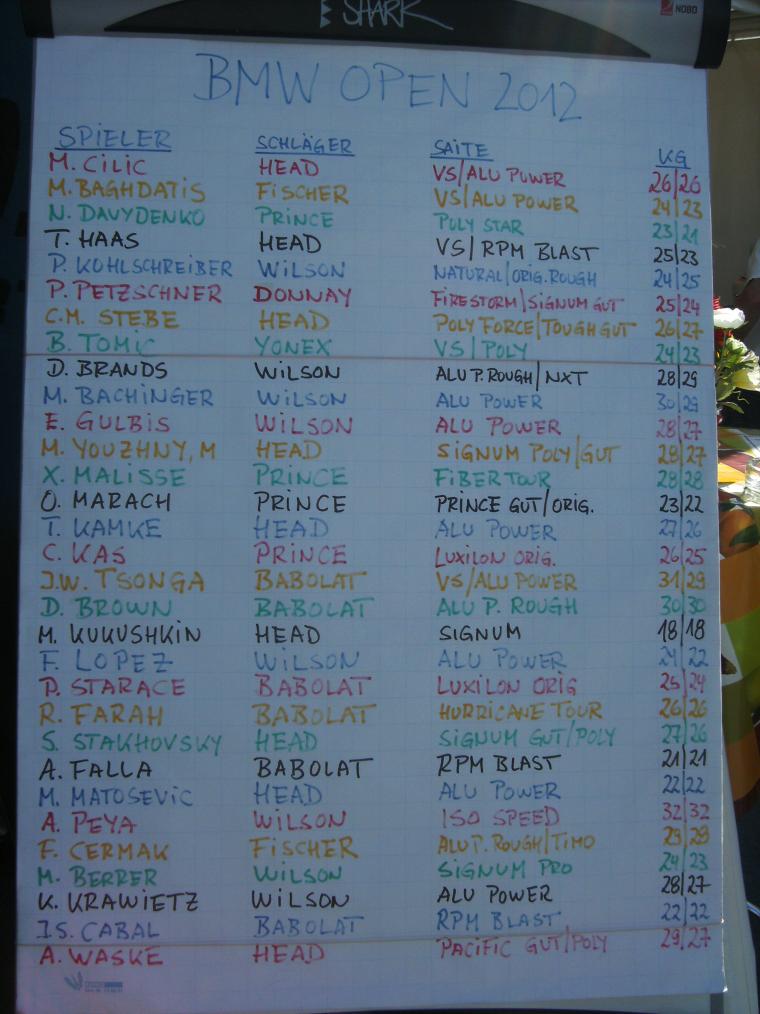 SHARK
NOBO
BMW OPEN 2012
SPIELER SCHLÄGER SAITE KG
M. CILIC HEAD VS/ALU POWER 26|26
M. BAGHDATIS FISCHER VS/ALU POWER 24|23
N. DAVYDENKO PRINCE POLY STAR 23|21
T. HAAS HEAD VS/RPM BLAST 25|23
P. KOHLSCHREIBER WILSON NATURAL/ORIG. ROUGH 24|25
P. PETZSCHNER DONNAY FIRESTORM/SIGNUM GUT 25|24
C.M. STEBE HEAD POLY FORCE/TOUGH GUT 26|27
B. TOMIC YONEX VS/POLY 24|23
D. BRANDS WILSON ALU P. ROUGH/NXT 28|29
M. BACHINGER WILSON ALU POWER 30|29
E. GULBIS WILSON ALU POWER 28|27
M. YOUZHNY, M HEAD SIGNUM POLY/GUT 28|27
X. MALISSE PRINCE FIBER TOUR 28|28
O. MARACH PRINCE PRINCE GUT/ORIG. 23|22
T. KAMKE HEAD ALU POWER 27|26
C. KAS PRINCE LUXILON ORIG. 26|25
J.W. TSONGA BABOLAT VS/ALU POWER 31|29
D. BROWN BABOLAT ALU P. ROUGH 30|30
M. KUKUSHKIN HEAD SIGNUM 18|18
F. LOPEZ WILSON ALU POWER 24|22
P. STARACE BABOLAT LUXILON ORIG 25|24
R. FARAH BABOLAT HURRICANE TOUR 26|26
S. STAKHOVSKY HEAD SIGNUM GUT/POLY 27|26
A. FALLA BABOLAT RPM BLAST 21|21
M. MATOSEVIC HEAD ALU POWER 22|22
A. PEYA WILSON ISO SPEED 32|32
F. CERMAK FISCHER ALU P. ROUGH/TIMO 29|28
M. BERRER WILSON SIGNUM PRO 24|23
K. KRAWIETZ WILSON ALU POWER 28|27
J.S. CABAL BABOLAT RPM BLAST 22|22
A. WASKE HEAD PACIFIC GUT/POLY 29|27